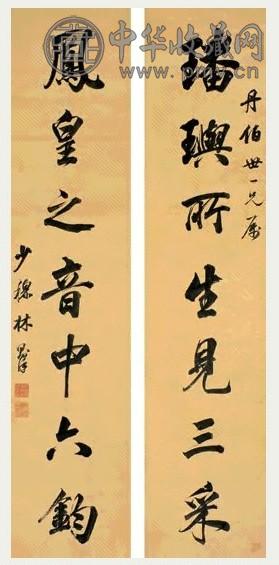 中华收藏网
www.pmcy.cn
丹伯世一兄属
璠璵所生見三采
鳳皇之音中六鈞
少穆林則徐